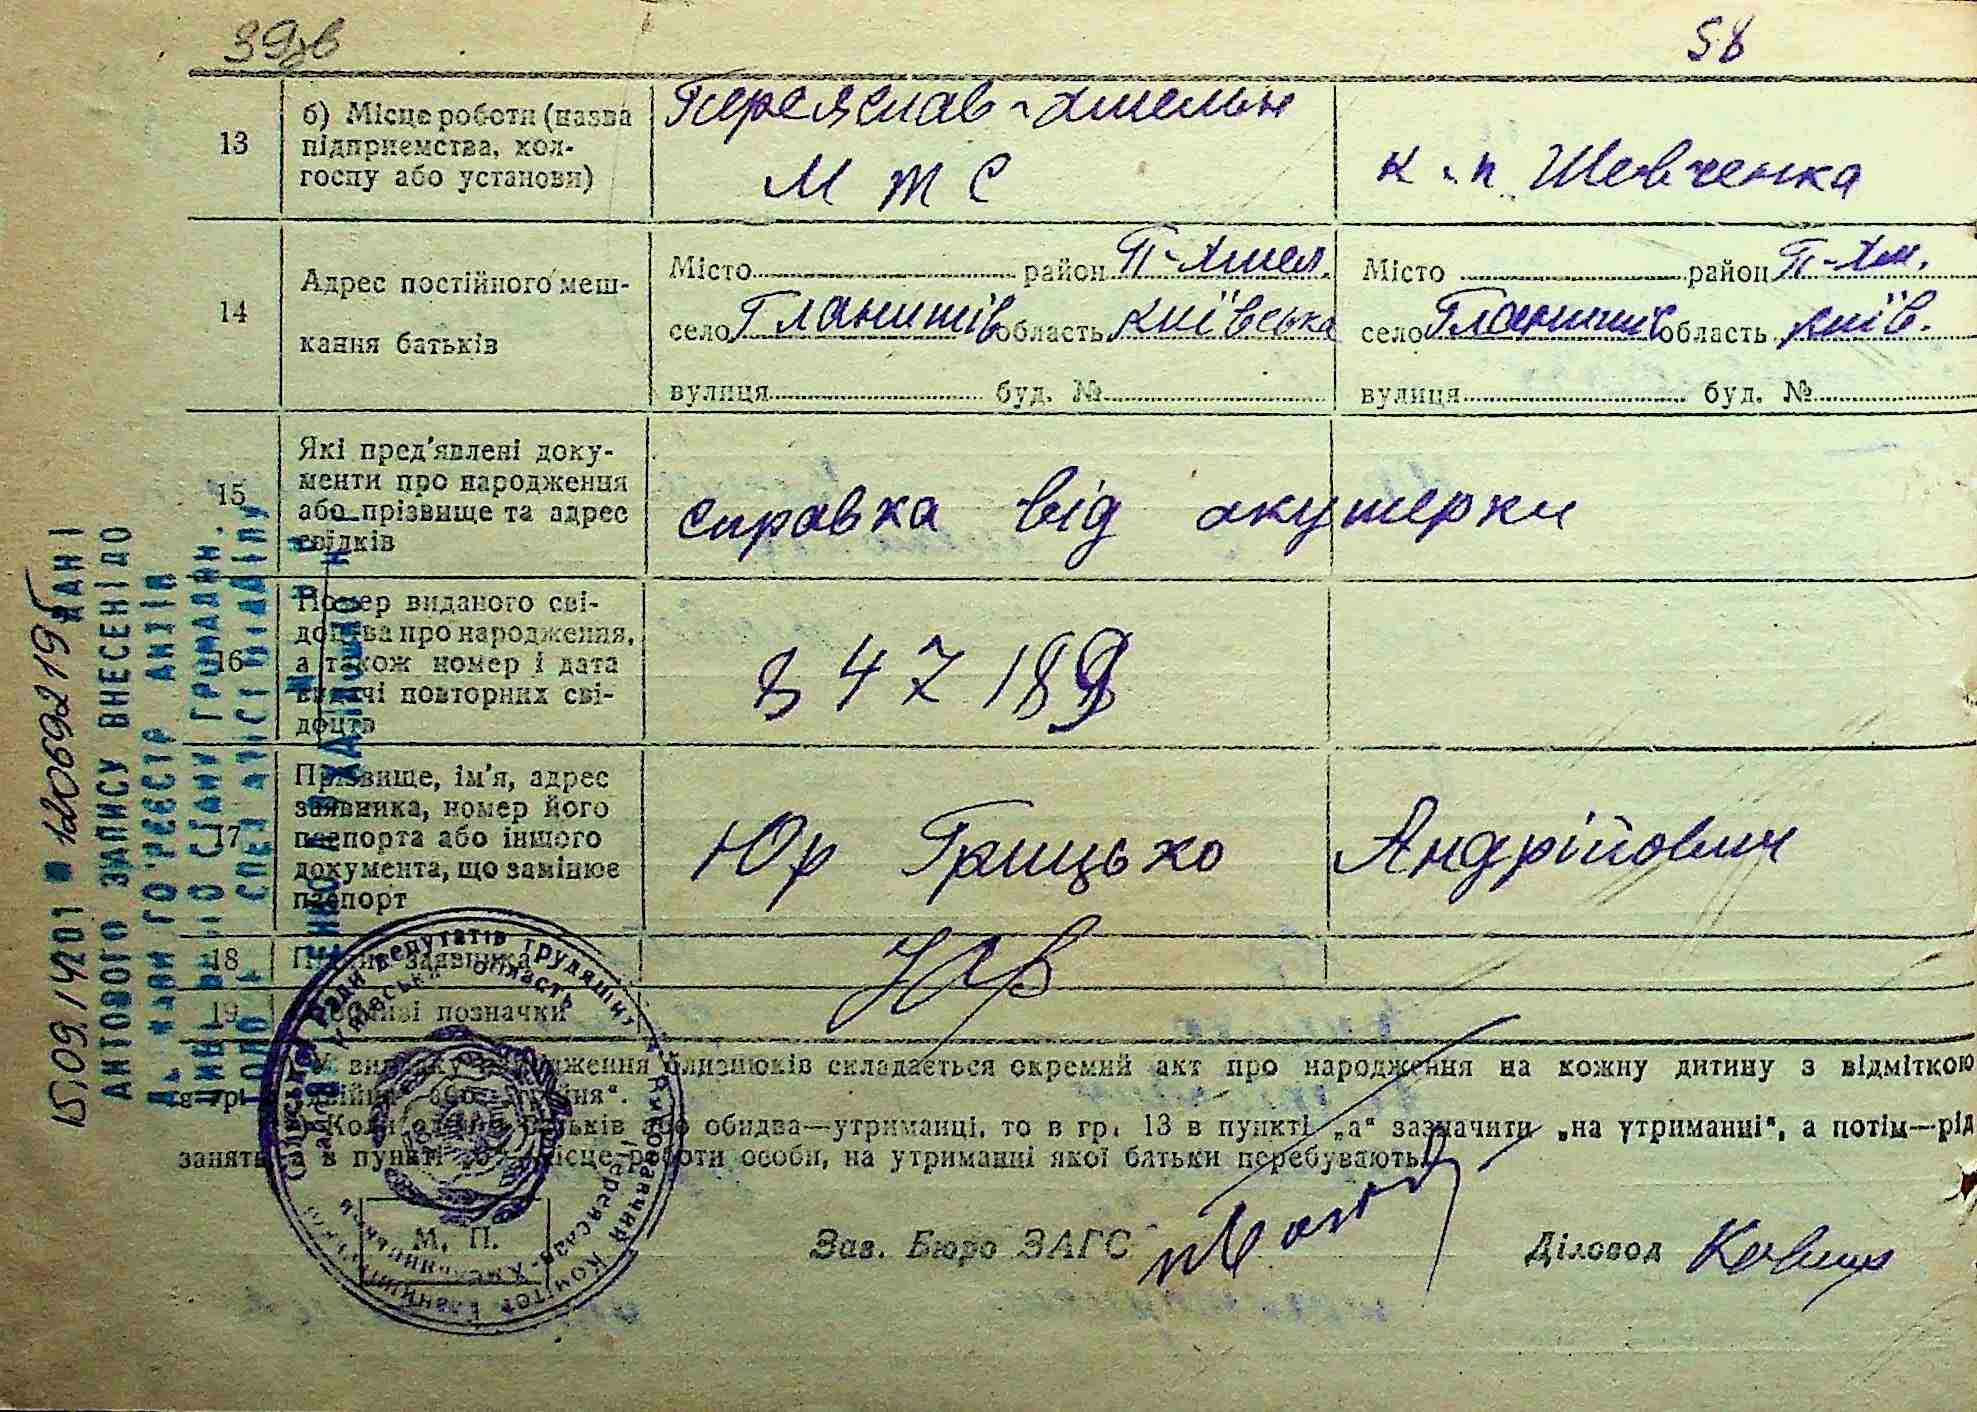 39зв
58
13
б) Місце роботи (назва
підприємства, кол-
госпу або установи)
Переяслав-Хмельн
М Т С
к-п Шевченка
14
Адрес постійного меш-
кання батьків
Місто район П-Хмел.
село Гланишів область Київська
вулиця буд. №
Місто район П-Хм.
село Гланишів область Київ.
вулиця буд. №
15
Які пред'явлені доку-
менти про народження
або прізвище та адрес
свідків
справка від акушерки
16
Номер виданого сві-
доцтва про народження,
а також номер і дата
видачі повторних сві-
доцтв
847189
17
Прізвище, ім'я, адрес
заявника, номер його
паспорта або іншого
документа, що замінює
паспорт
Юр Грицько Андрійович
18
Підпис заявника
19
Особливі позначки
У випадку народження близнюків складається окремий акт про народження на кожну дитину з відміткою
Коли один з батьків або обидва—утриманці, то в гр. 13 в пункті „а“ зазначити „на утриманні“, а потім—рід
занять, а в пункті „б“ місце роботи особи, на утриманні якої батьки перебувають.
М. П.
Зав. Бюро ЗАГС
Діловод
ДАНІ
АКТОВОГО ЗАПИСУ ВНЕСЕНІ ДО
ради депутатів трудящих
Київська область
Виконавчий Комітет
Переяслав-Хмельницький